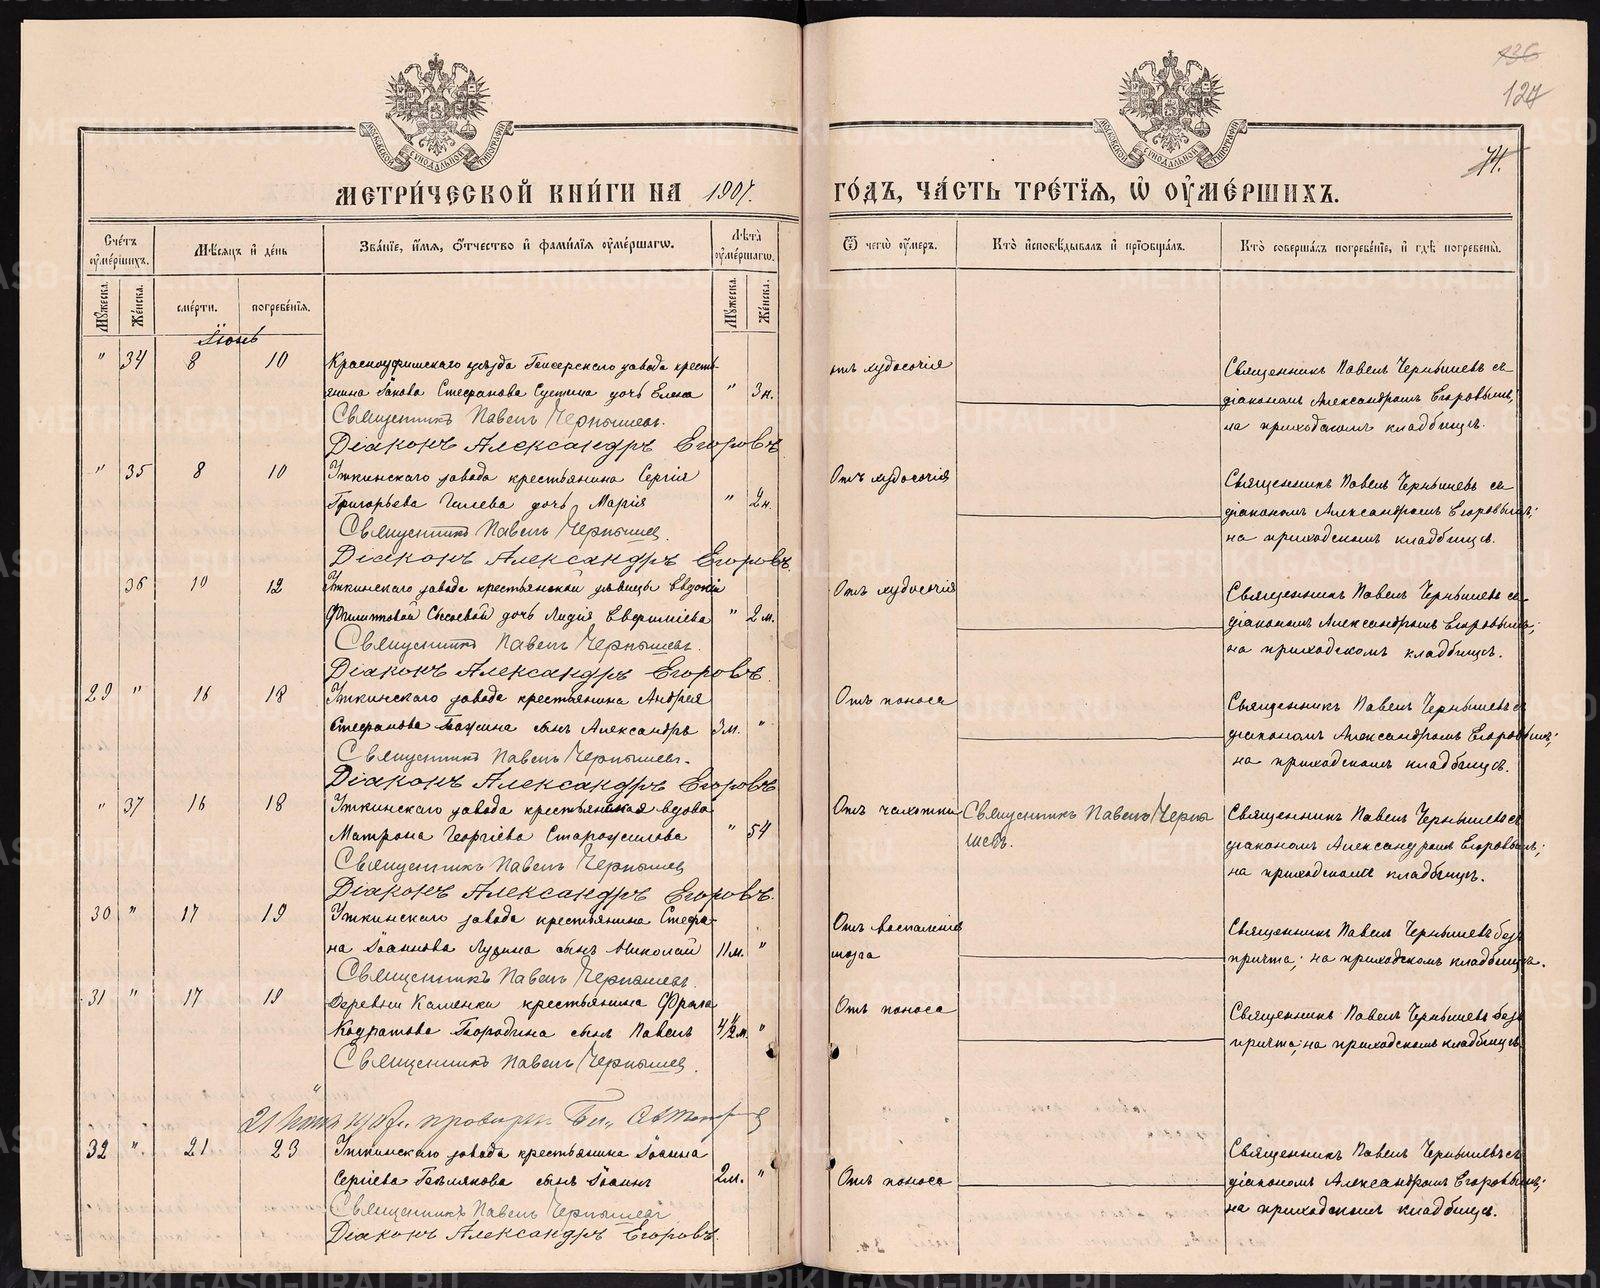 136
127
74.
МОСКОВСКОЙ СѴНОДАЛЬНОЙ ТИПОГРАФІИ
МОСКОВСКОЙ СѴНОДАЛЬНОЙ ТИПОГРАФІИ
МЕТРИ́ЧЕСКОЙ КНИ́ГИ НА 1907.
ГО́ДЪ, ЧА́СТЬ ТРЕ́ТІѦ, Ѡ҆ ОУ҆МЕ́РШИХЪ.
Сче́тъ оу҆ме́ршихъ.
Мѣ́сяцъ и҆ де́нь
Зва́нїе, и҆́мѧ, ѻ҆́тчество и҆ фами́лїѧ оу҆ме́ршагѡ.
Лѣ́та оу҆ме́ршагѡ.
Ѿ чегѡ̀ оу҆́меръ.
Кто̀ и҆сповѣ́дывалъ и҆ прїѡбща́лъ.
Кто̀ соверша́лъ погребе́нїе, и҆ гдѣ̀ погребены̀.
Мꙋ́жеска. Же́нска.
сме́рти. погребе́нїѧ.
Мꙋ́жеска. Же́нска.
Іюнь
" 34 8 10 Красноуфимскаго уѣзда завода кресть-
янина Іакова Стефанова дочь Елена " 3 н.
Священникъ Павелъ Чернышевъ.
Діаконъ Александръ Егоровъ
отъ худосочія
Священникъ Павелъ Чернышевъ съ
діакономъ Александромъ Егоровымъ;
на приходскомъ кладбищѣ.
" 35 8 10 Уткинскаго завода крестьянина Сергія
Григорьева Гилева дочь Марія " 2 н.
Священникъ Павелъ Чернышев.
Діаконъ Александръ Егоровъ.
Отъ худосочія
Священникъ Павелъ Чернышевъ съ
діакономъ Александромъ Егоровымъ;
на приходскомъ кладбищѣ.
36 10 12 Уткинскаго завода крестьянской дѣвицы Евдокіи
Филипповой Сысоевой дочь Лидія " 2 м.
Священникъ Павелъ Чернышевъ.
Діаконъ Александръ Егоровъ.
Отъ худосочія
Священникъ Павелъ Чернышевъ съ
діакономъ Александромъ Егоровымъ;
на приходскомъ кладбищѣ.
29 " 16 18 Уткинскаго завода крестьянина Андрея
Стефанова сынъ Александръ 3 м. "
Священникъ Павелъ Чернышевъ.
Діаконъ Александръ Егоровъ
Отъ поноса
Священникъ Павелъ Чернышевъ съ
діакономъ Александромъ Егоровымъ;
на приходскомъ кладбищѣ.
" 37 16 18 Уткинскаго завода крестьянская вдова
Матрона Георгіева " 54
Священникъ Павелъ Чернышев
Діаконъ Александръ Егоровъ.
Отъ чахотки
Священникъ Павелъ Черны
шевъ.
Священникъ Павелъ Чернышевъ съ
діакономъ Александромъ Егоровымъ;
на приходскомъ кладбищѣ.
30 " 17 19 Уткинскаго завода крестьянина Стефа-
на Іоаннова Лузина сынъ Николай 11 м. "
Священникъ Павелъ Чернышевъ.
Отъ воспаленія
мозга
Священникъ Павелъ Чернышевъ безъ
причта; на приходскомъ кладбищѣ.
31 " 17 19 Деревни Каменки крестьянина Фрола
Кодратова Бородина сынъ Павелъ 4½ м. "
Священникъ Павелъ Чернышев.
Отъ поноса
Священникъ Павелъ Чернышевъ безъ
причта; на приходскомъ кладбищѣ.
32 " 21 23 Уткинскаго завода крестьянина Іоанна
Сергіева сынъ Іоаннъ 2 м. "
Священникъ Павелъ Чернышевъ
Діаконъ Александръ Егоровъ.
Отъ поноса
Священникъ Павелъ Чернышевъ съ
діакономъ Александромъ Егоровымъ;
на приходскомъ кладбищѣ.
METRIKI.GASO-URAL.RU